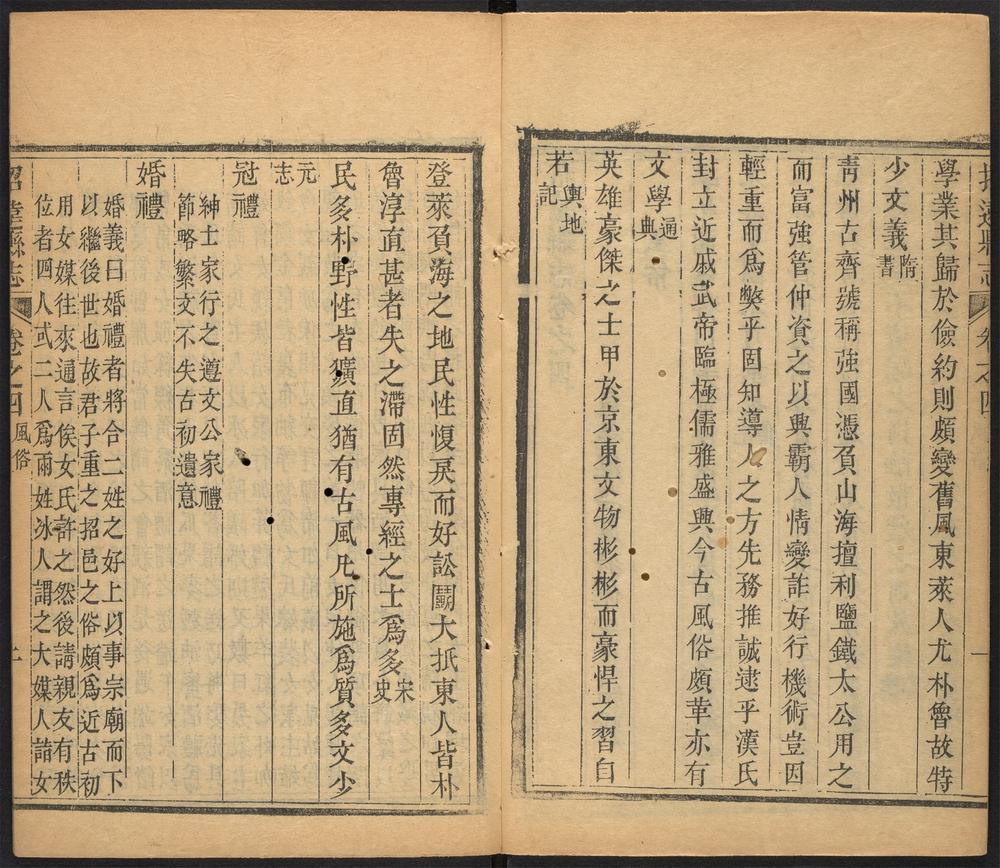 招遠縣志 卷之四 一
學業其歸於儉約則頗變舊風東萊人尤朴魯故特
少文義隋書
靑州古齊號稱強國憑負山海擅利鹽鐵太公用之
而富強管仲資之以興霸人情變詐好行機術豈因
輕重而爲獘乎固知導人之方先務推誠逮乎漢氏
封立近戚武帝臨極儒雅盛興今古風俗頗革亦有
文學通典
英雄豪傑之士甲於京東文物彬彬而豪悍之習自
若輿地記
登萊負海之地民性愎戾而好訟鬬大抵東人皆朴
魯淳直甚者失之滯固然專經之士爲多宋史
民多朴野性皆獷直猶有古風凡所施爲質多文少
元志
冠禮
紳士家行之遵文公家禮
節略繁文不失古初遺意
婚禮
婚義曰婚禮者將合二姓之好上以事宗廟而下
以繼後世也故君子重之招邑之俗頗爲近古初
用女媒往來通言俟女氏許之然後請親友有秩
位者四人或二人爲兩姓冰人謂之大媒人詣女
招遠縣志 卷之四 風俗 二